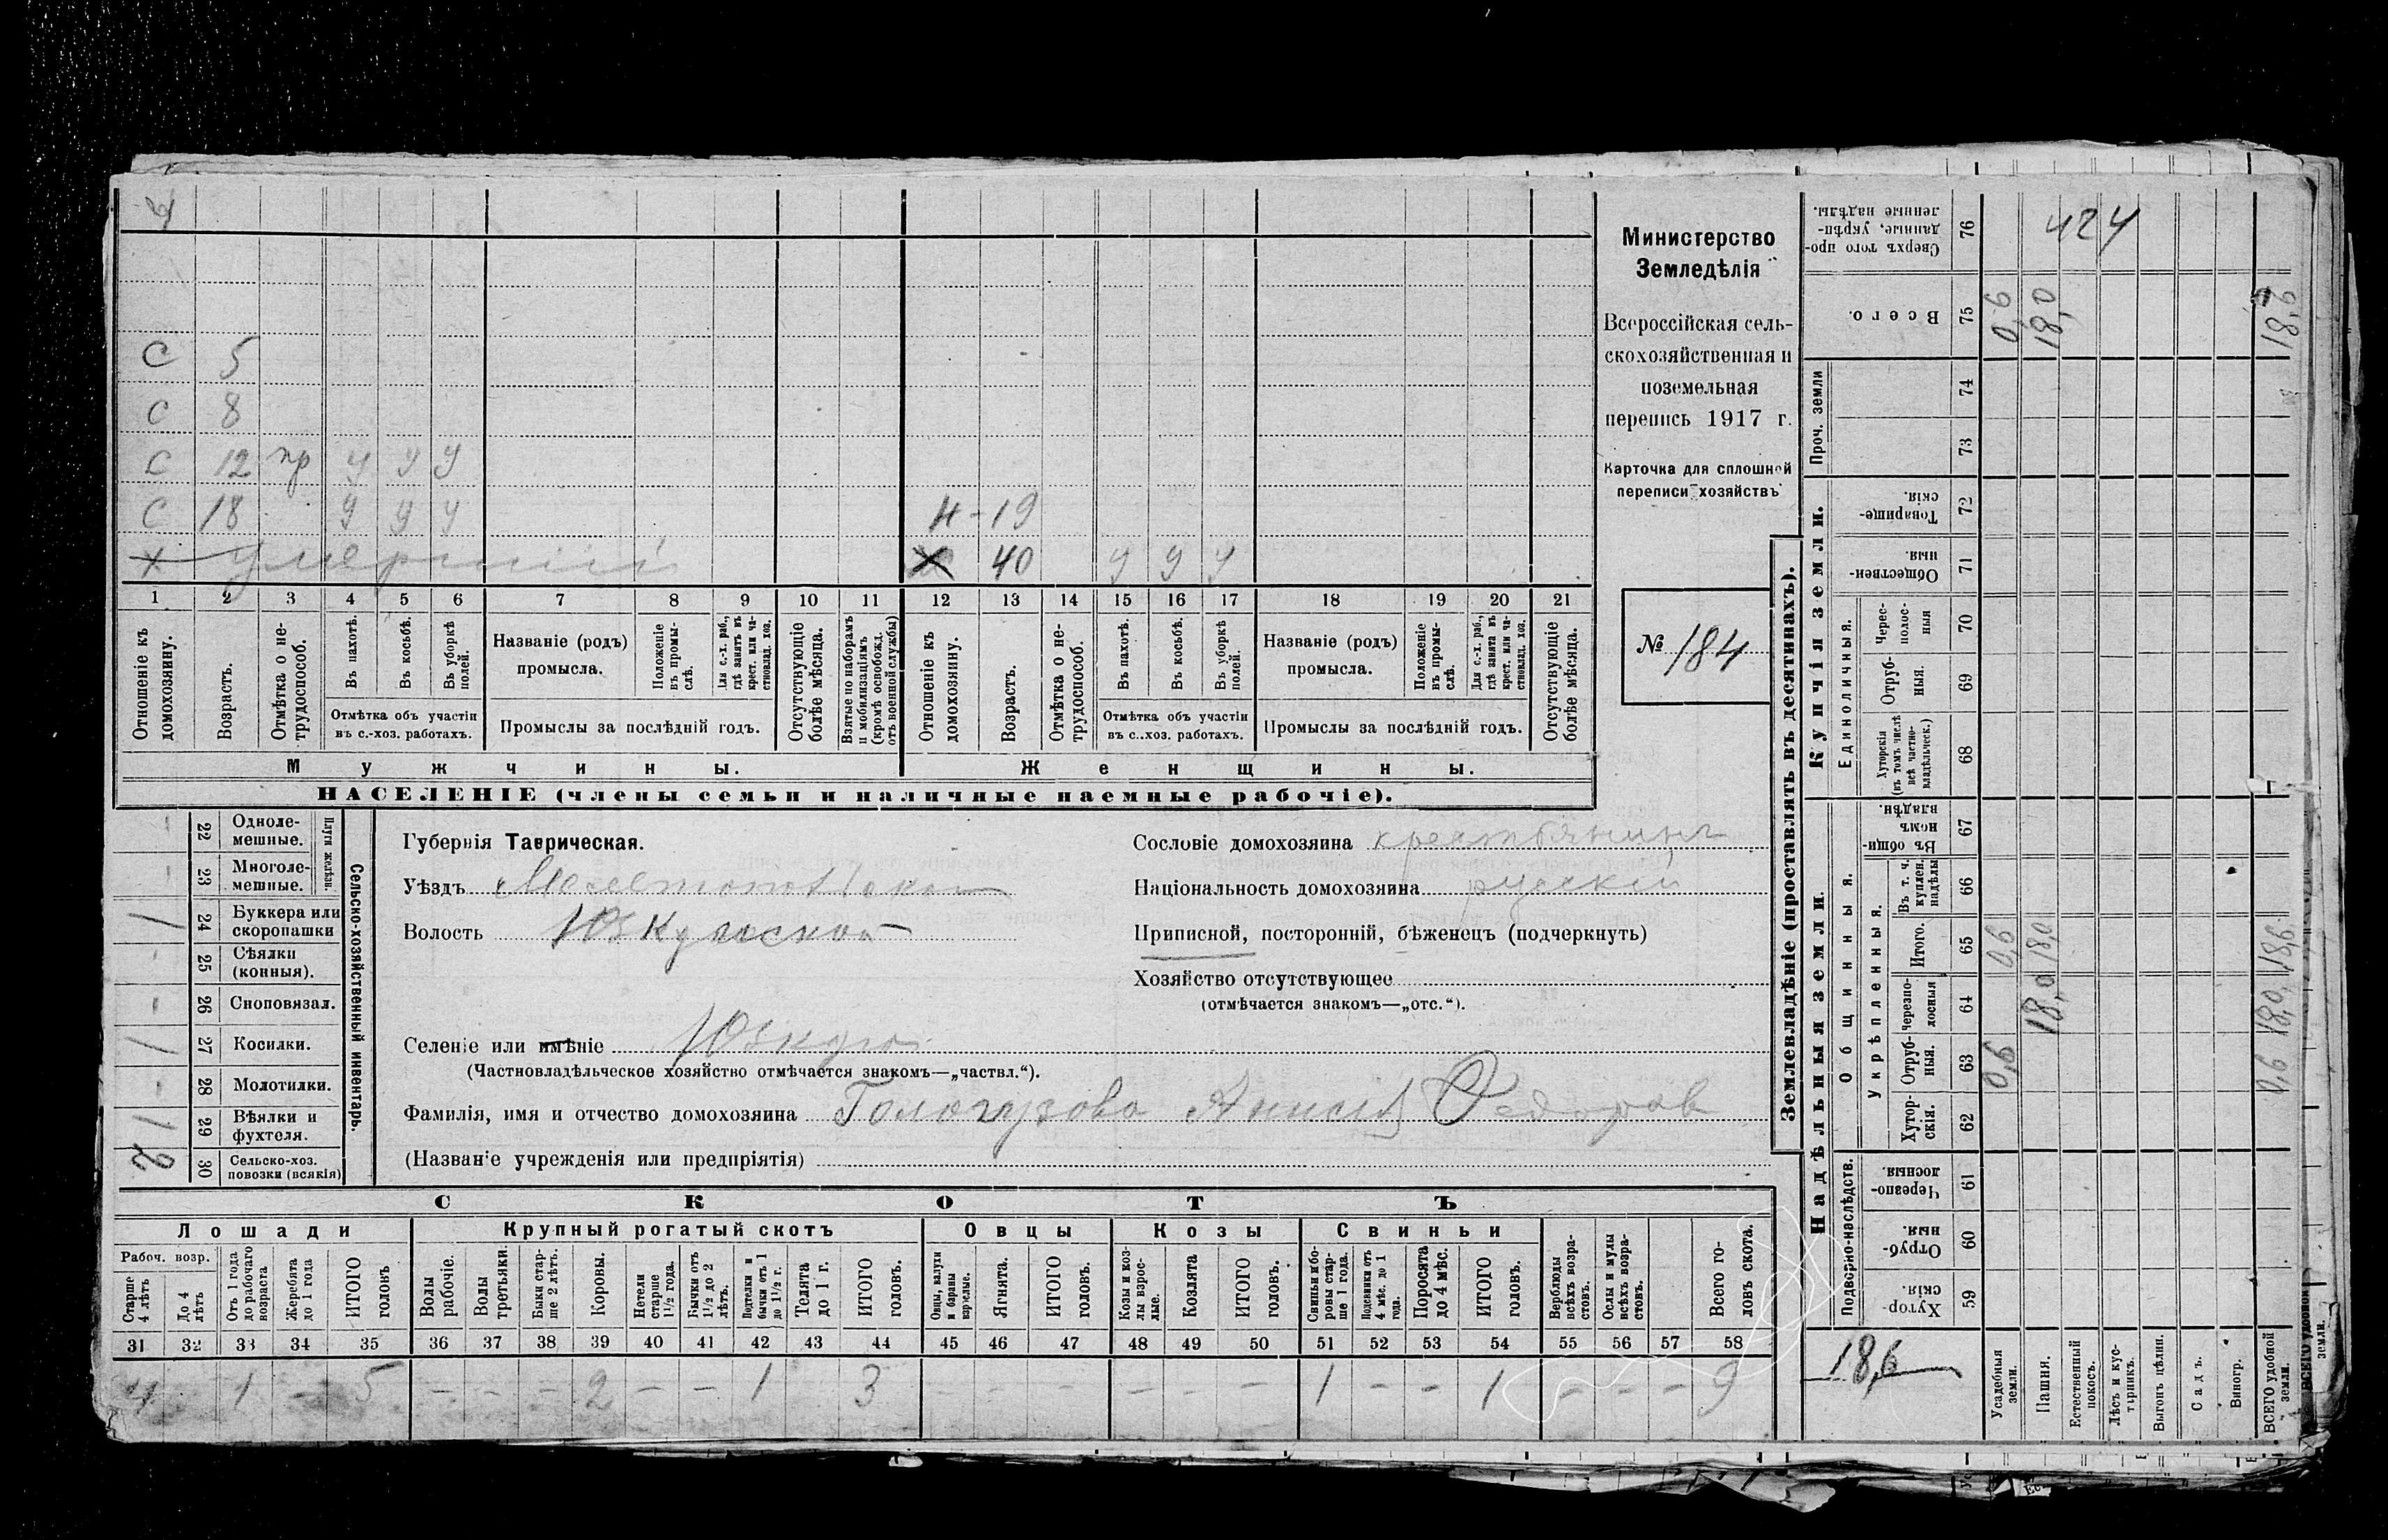 4
С 5
С 8
С 12 пр у у у
С 18 у у у
Н - 19
х умерший
х 40 у у у
1 2 3 4 5 6 7 8 9 10 11 12 13 14 15 16 17 18 19 20 21
Отношеніе къ домохозяину.
Возрастъ.
Отмѣтка о не-
трудоспособ.
Въ пахотѣ.
Въ косьбѣ.
Въ уборкѣ
полей.
Отмѣтка объ участіи
въ с.-хоз. работахъ.
Названіе (родъ)
промысла.
Положеніе
въ промы-
слѣ.
Для с.-х. раб.,
гдѣ занятъ въ
крест. или ча-
стновлад. хоз.
Промыслы за послѣдній годъ.
Отсутствующіе
болѣе мѣсяца.
Взятые по наборамъ
и мобилизаціямъ
(кромѣ освобожд.
отъ военной службы)
Отношеніе къ
домохозяину.
Возрастъ.
Отмѣтка о не-
трудоспособ.
Въ пахотѣ.
Въ косьбѣ.
Въ уборкѣ
полей.
Отмѣтка объ участіи
въ с..хоз. работахъ.
Названіе (родъ)
промысла.
Положеніе
въ промы-
слѣ.
Для с.-х. раб.,
гдѣ занята въ
крест. или ча-
стновлад. хоз.
Промыслы за послѣдній годъ.
Отсутствующіе
болѣе мѣсяца.
Мужчины.
Женщины.
НАСЕЛЕНІЕ (члены семьи и наличные наемные рабочіе).
Министерство
Земледѣлія
Всероссійская сель-
скохозяйственная и
поземельная
перепись 1917 г.
Карточка для сплошной
переписи хозяйствъ
№ 184
Сельско-хозяйственный инвентарь.
Плуги желѣзн.
- 22 Одноле-
мешные.
- 23 Многоле-
мешные.
1 24 Буккера или
скоропашки
- 25 Сѣялки
(конныя).
- 26 Сноповязал.
1 27 Косилки.
- 28 Молотилки.
1 29 Вѣялки и
фухтеля.
2 30 Сельско-хоз.
повозки (всякія)
Губернія Таврическая.
Уѣздъ Мелитопольской
Волость Юзкуйской
Селеніе или имѣніе Юзкуи
(Частновладѣльческое хозяйство отмѣчается знакомъ—„частвл.“).
Фамилія, имя и отчество домохозяина Федоров
(Названіе учрежденія или предпріятія)
Сословіе домохозяина крестьянинъ
Національность домохозяина русскій
Приписной, посторонній, бѣженецъ (подчеркнуть)
Хозяйство отсутствующее
(отмѣчается знакомъ—„отс.“).
СКОТЪ
Лошади
Крупный рогатый скотъ
Овцы
Козы
Свиньи
Рабоч. возр.
Старше
4 лѣтъ
До 4
лѣтъ
Отъ 1 года
до рабочаго
возраста
Жеребята
до 1 года
ИТОГО
головъ
Волы
рабочіе.
Волы
третьяки.
Быки стар-
ше 2 лѣтъ.
Коровы.
Нетели
старше
1½ года.
Бычки отъ
1½ до 2
лѣтъ.
Подтелки и
бычки отъ 1
до 1½ г.
Телята
до 1 г.
ИТОГО
головъ.
Овцы, валухи
и бараны
взрослые.
Ягнята.
ИТОГО
головъ.
Козы и коз-
лы взрос-
лые.
Козлята
ИТОГО
головъ.
Свиньи и бо-
ровы стар-
ше 1 года.
Подсвинки отъ
4 мѣс. до 1
года.
Поросята
до 4 мѣс.
ИТОГО
головъ.
Верблюды
всѣхъ возра-
стовъ.
Ослы и мулы
всѣхъ возра-
стовъ.
Всего го-
ловъ скота.
31 32 33 34 35 36 37 38 39 40 41 42 43 44 45 46 47 48 49 50 51 52 53 54 55 56 57 58
4 - 1 - 5 - - - 2 - - 1 3 - - - - - - 1 - - 1 - - - 9
Землевладѣніе (проставлять въ десятинахъ).
Купчія земли.
Надѣльныя земли.
Сверхъ того про-
данные, укрѣп-
ленные надѣлы.
76
424
Всего.
75
0,6 18,0 18,6
Проч. земли
74
73
Товарище-
скія.
72
Обществен-
ныя.
71
Единоличныя.
Черес-
полос-
ныя
70
Отруб-
ныя.
69
Хуторскія
(въ томъ числѣ
всѣ частно-
владѣльческ.)
68
Общинныя.
Въ общин-
номъ
владѣн.
67
Укрѣпленныя.
Въ т. ч.
куплен.
надѣлы
66
Итого.
65
0,6 18,0 18,6
Черезпо-
лосныя
64
18,0 18,0
Отруб-
ныя.
63
0,6 0,6
Хутор-
скія.
62
Подворно-наслѣдств.
Черезпо-
лосныя.
61
Отруб-
ныя.
60
Хутор-
скія.
59
18,6
Усадебныя
земли.
Пашня.
Естественный
покосъ.
Лѣсъ и кус-
тарникъ.
Выгонъ цѣлин.
Садъ.
Виногр.
ВСЕГО удобной
земли.
ВСЕГО удобной
земли.